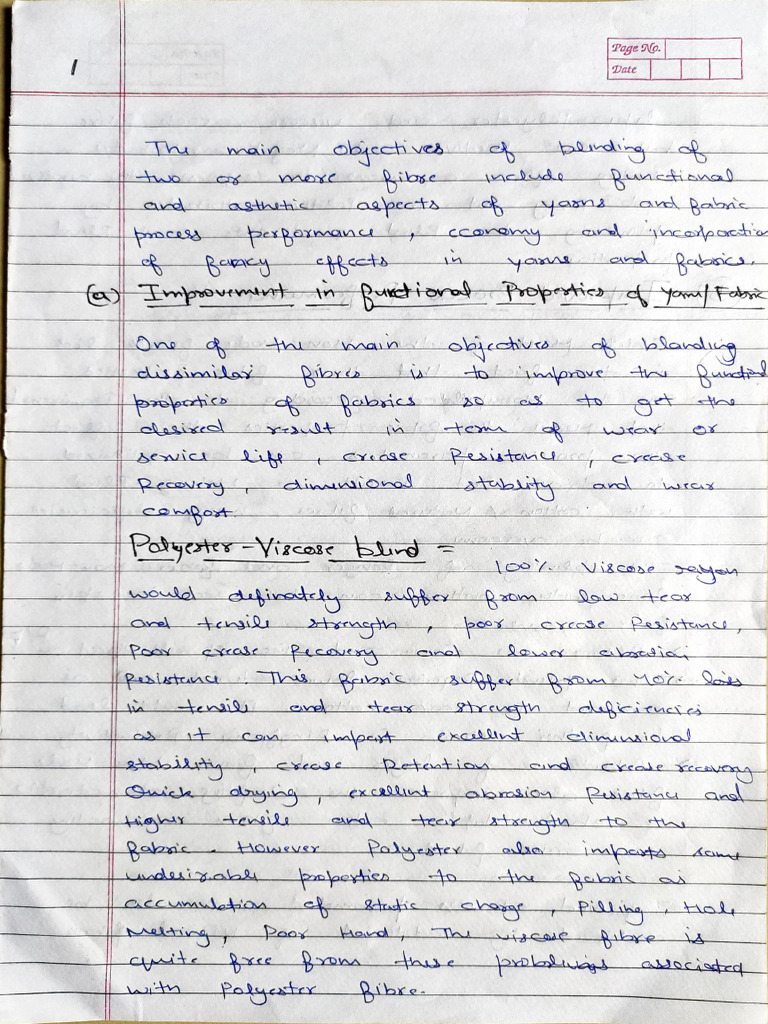 1
Page No.
Date
The main objectives of blending of
two or more fibre include functional
and asthetic aspects of yarns and fabric
process performance, economy and incorporation
of fancy effects in yarns and fabrics.
(a) Improvement in functional Properties of yarn/Fabric
One of the main objectives of blanding
dissimilar fibres is to improve the functional
properties of fabrics so as to get the
desired result in term of wear or
service life, crease Resistance, crease
Recovery, dimensional stablity and wear
comfort
Polyester-Viscose blend =
100% Viscose rayon
would definately suffer from low tear
and tensile strength, poor crease Resistance,
Poor crease Recovery and lower abrasion
Resistance. This fabric suffer from 40% loss
in tensile and tear strength deficiencies
as it can impart excellent dimensional
stability, crease Retention and crease recovery
Quick drying, excellent abrasion Resistance and
Higher tensile and tear strength to the
fabric. However Polyester also imparts some
undesirable properties to the fabric as
accumulation of static charge, Pilling, Hole
Melting, Poor Hand, The viscose fibre is
quite free from these problems associated
with Polyester fibre.